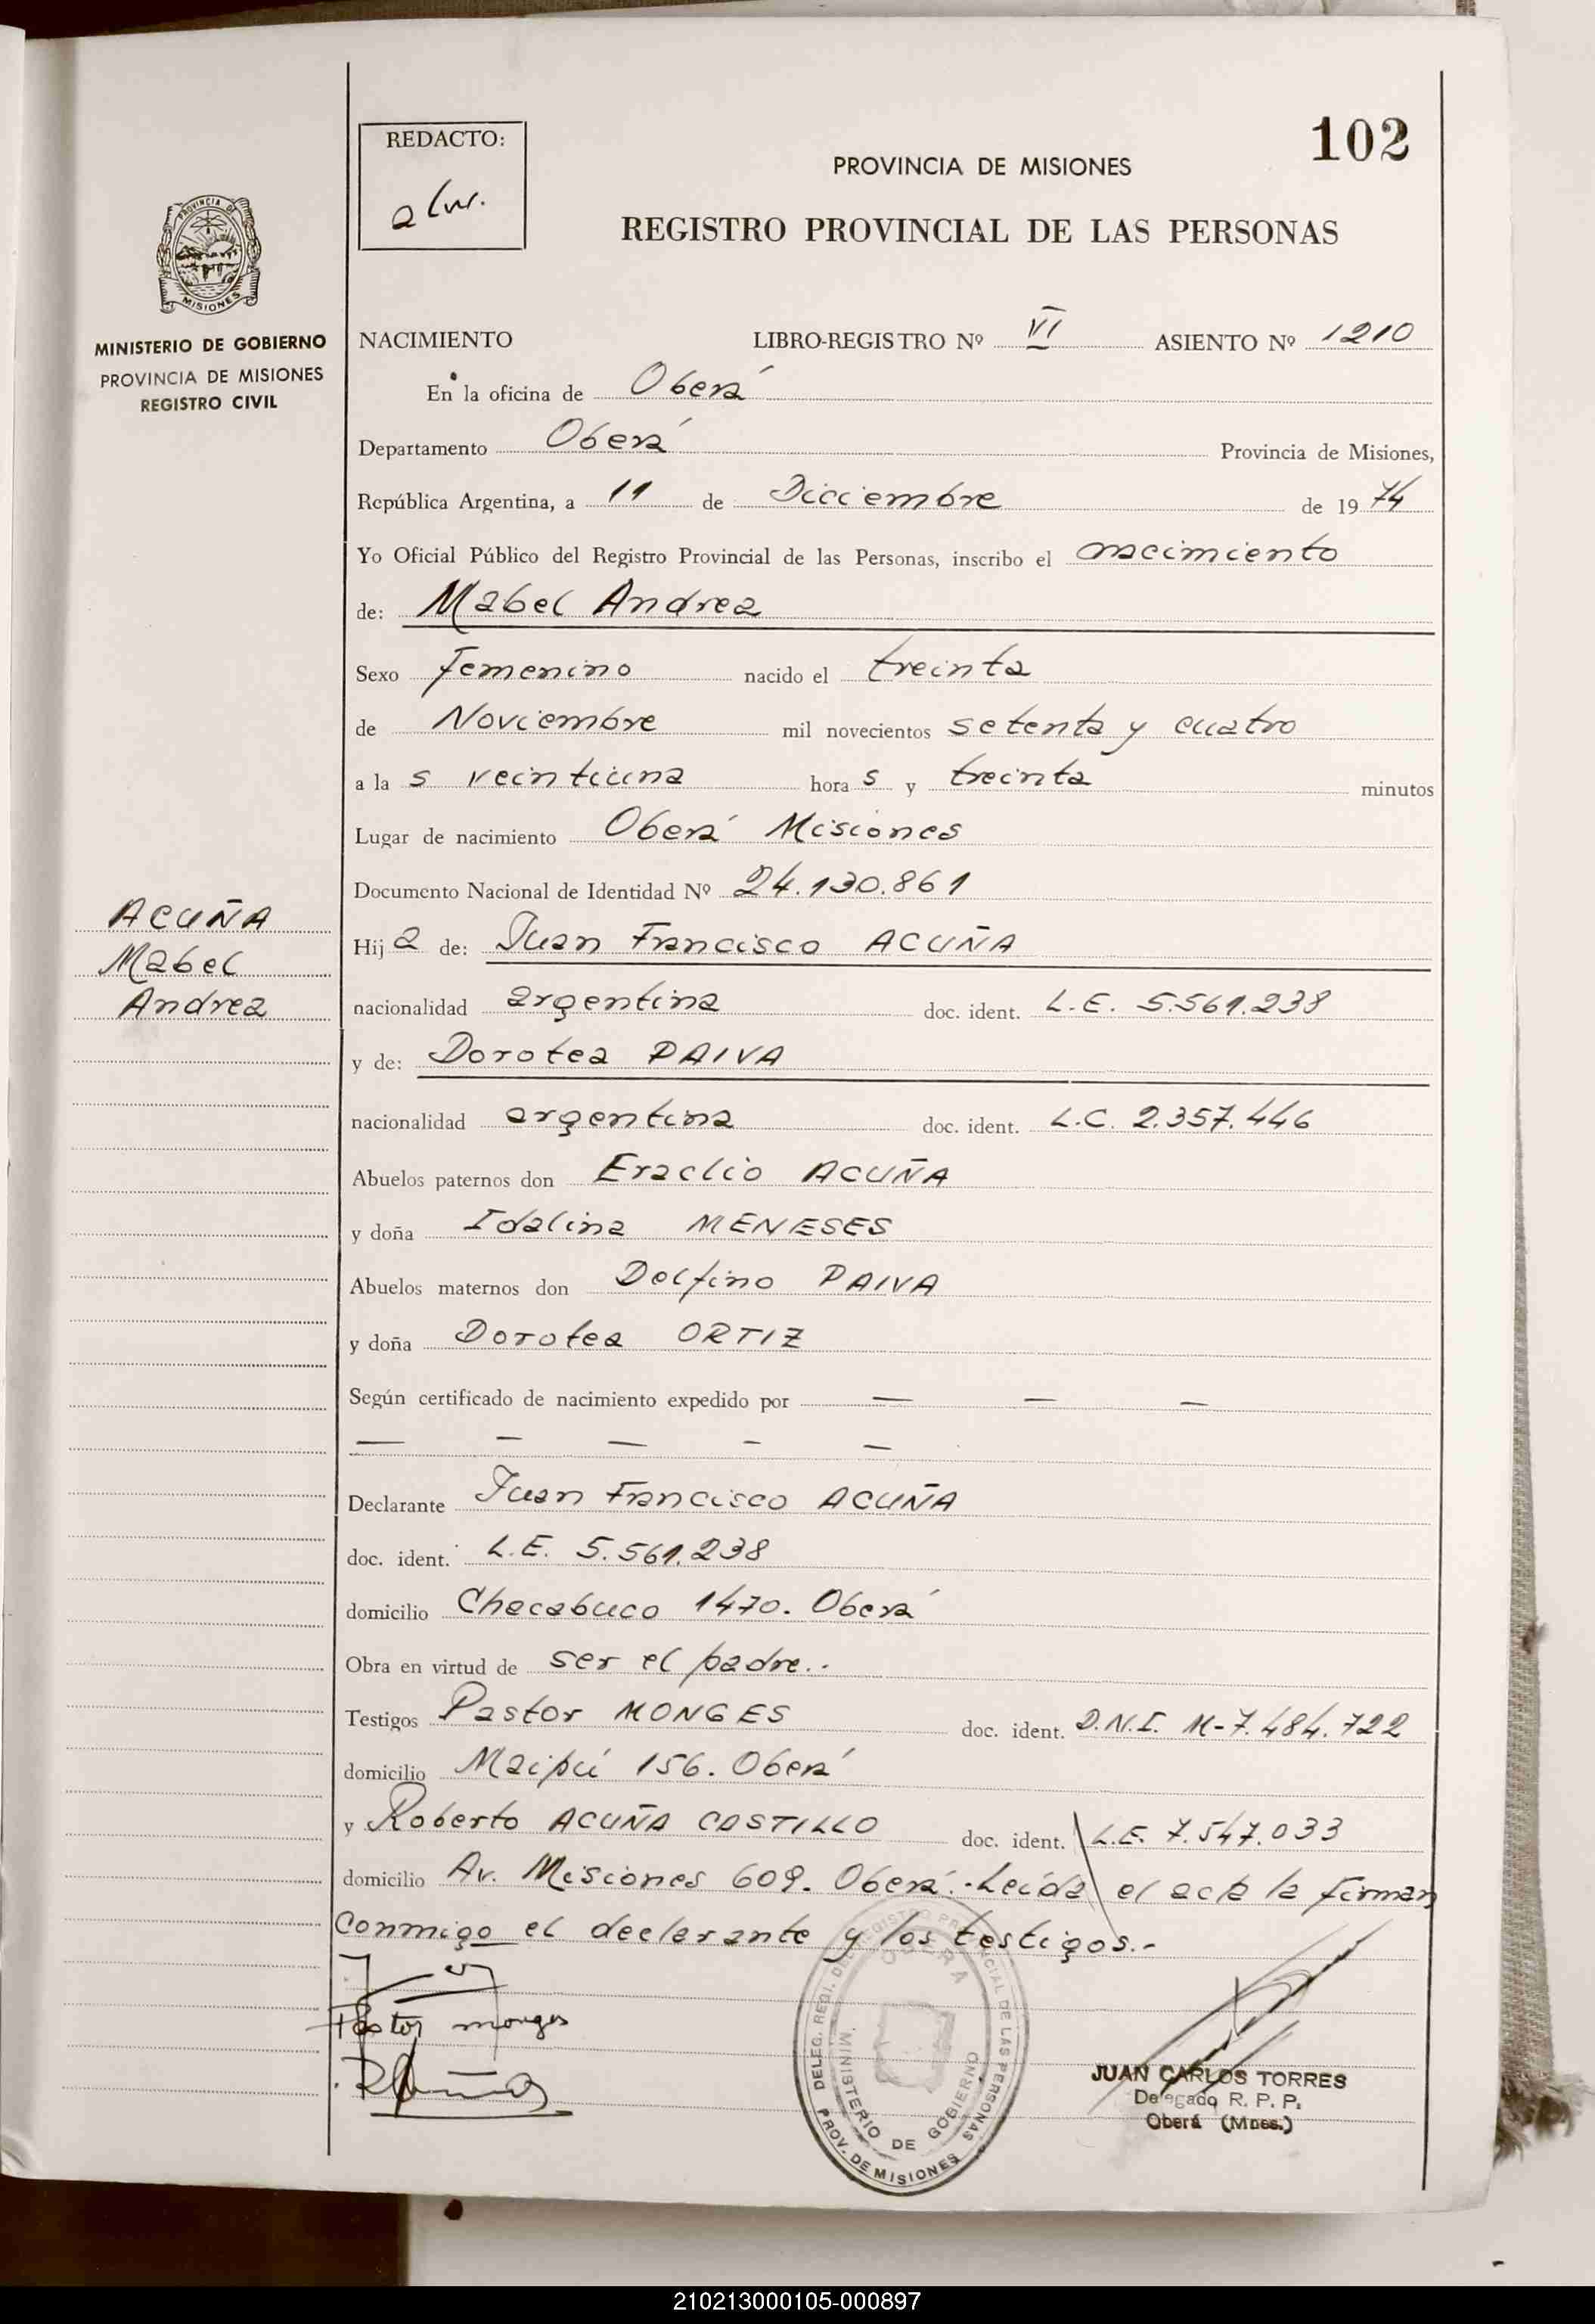 102
REDACTO:
PROVINCIA DE MISIONES
REGISTRO PROVINCIAL DE LAS PERSONAS
PROVINCIA DE
MISIONES
MINISTERIO DE GOBIERNO
PROVINCIA DE MISIONES
REGISTRO CIVIL
NACIMIENTO LIBRO-REGISTRO Nº VI ASIENTO Nº 1210
En la oficina de Oberá
Departamento Oberá Provincia de Misiones,
República Argentina, a 11 de Diciembre de 1974
Yo Oficial Público del Registro Provincial de las Personas, inscribo el nacimiento
de: Mabel Andrea
Sexo Femenino nacido el treinta
de Noviembre mil novecientos setenta y cuatro
a la s veintiuna hora s y treinta minutos
Lugar de nacimiento Oberá Misiones
Documento Nacional de Identidad Nº 24.130.861
ACUÑA
Mabel
Andrea
Hij a de: Juan Francisco ACUÑA
nacionalidad argentina doc. ident. L.E. 5.561.238
y de: Dorotea PAIVA
nacionalidad argentina doc. ident. L.C. 2.357.446
Abuelos paternos don Eraclio ACUÑA
y doña Idalina MENESES
Abuelos maternos don Delfino PAIVA
y doña Dorotea ORTIZ
Según certificado de nacimiento expedido por — — —
— — — — —
Declarante Juan Francisco ACUÑA
doc. ident. L.E. 5.561.238
domicilio Chacabuco 1470. Oberá
Obra en virtud de ser el padre..
Testigos Pastor MONGES doc. ident. D.N.I. M-7.484.722
domicilio Maipú 156. Oberá
y Roberto ACUÑA CASTILLO doc. ident. L.E. 7.547.033
domicilio Av. Misiones 609. Oberá.-Leída el acta la firman
conmigo el declarante y los testigos.-
Pastor monges
DELEG. REGI. DEL REGISTRO PROVINCIAL DE LAS PERSONAS
OBERA
MINISTERIO DE GOBIERNO
PROV. DE MISIONES
JUAN CARLOS TORRES
Delegado R. P. P.
Oberá (Mnes.)
210213000105-000897